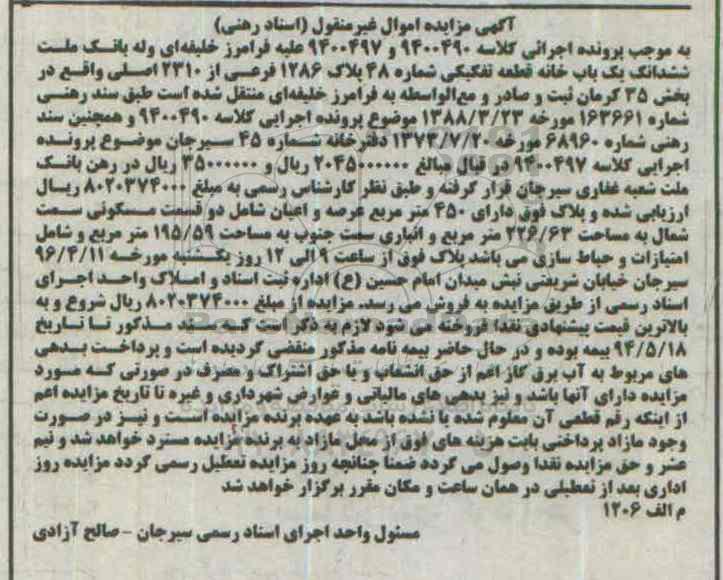 آگهی مزایده اموال غیرمنقول (اسناد رهنی)
به موجب پرونده اجرائی کلاسه ۹۴۰۰۴۹۰ و ۹۴۰۰۴۹۷ علیه فرامرز خلیفه‌ای وله بانک ملت
ششدانگ یک باب خانه قطعه تفکیکی شماره ۴۸ پلاک ۱۲۸۶ فرعی از ۲۳۱۰ اصلی واقع در
بخش ۳۵ کرمان ثبت و صادر و مع‌الواسطه به فرامرز خلیفه‌ای منتقل شده است طبق سند رهنی
شماره ۱۶۳۶۶۱ مورخه ۱۳۸۸/۳/۲۳ موضوع پرونده اجرایی کلاسه ۹۴۰۰۴۹۰ و همچنین سند
رهنی شماره ۶۸۹۶۰ مورخه ۱۳۷۳/۷/۲۰ دفترخانه شماره ۴۵ سیرجان موضوع پرونده
اجرایی کلاسه ۹۴۰۰۴۹۷ در قبال مبالغ ۲۰۴۵۰۰۰۰۰۰ ریال و ۳۵۰۰۰۰۰۰ ریال در رهن بانک
ملت شعبه غفاری سیرجان قرار گرفته و طبق نظر کارشناس رسمی به مبلغ ۸۰۲۰۳۷۴۰۰۰ ریال
ارزیابی شده و پلاک فوق دارای ۴۵۰ متر مربع عرصه و اعیان شامل دو قسمت مسکونی سمت
شمال به مساحت ۲۲۶/۶۳ متر مربع و انباری سمت جنوب به مساحت ۱۹۵/۵۹ متر مربع و شامل
امتیازات و حیاط سازی می باشد پلاک فوق از ساعت ۹ الی ۱۲ روز یکشنبه مورخه ۹۶/۴/۱۱
سیرجان خیابان شریعتی نبش میدان امام حسین (ع) اداره ثبت اسناد و املاک واحد اجرای
اسناد رسمی از طریق مزایده به فروش می رسد. مزایده از مبلغ ۸۰۲۰۳۷۴۰۰۰ ریال شروع و به
بالاترین قیمت پیشنهادی نقدا فروخته می شود لازم به ذکر است که سند مذکور تا تاریخ
۹۴/۵/۱۸ بیمه بوده و در حال حاضر بیمه نامه مذکور منقضی گردیده است و پرداخت بدهی
های مربوط به آب برق گاز اعم از حق انشعاب و یا حق اشتراک و مصرف در صورتی که مورد
مزایده دارای آنها باشد و نیز بدهی های مالیاتی و عوارض شهرداری و غیره تا تاریخ مزایده اعم
از اینکه رقم قطعی آن معلوم شده یا نشده باشد به عهده برنده مزایده است و نیز در صورت
وجود مازاد پرداختی بابت هزینه های فوق از محل مازاد به برنده مزایده مسترد خواهد شد و نیم
عشر و حق مزایده نقدا وصول می گردد ضمنا چنانچه روز مزایده تعطیل رسمی گردد مزایده روز
اداری بعد از تعطیلی در همان ساعت و مکان مقرر برگزار خواهد شد
م الف ۱۲۰۶
مسئول واحد اجرای اسناد رسمی سیرجان - صالح آزادی